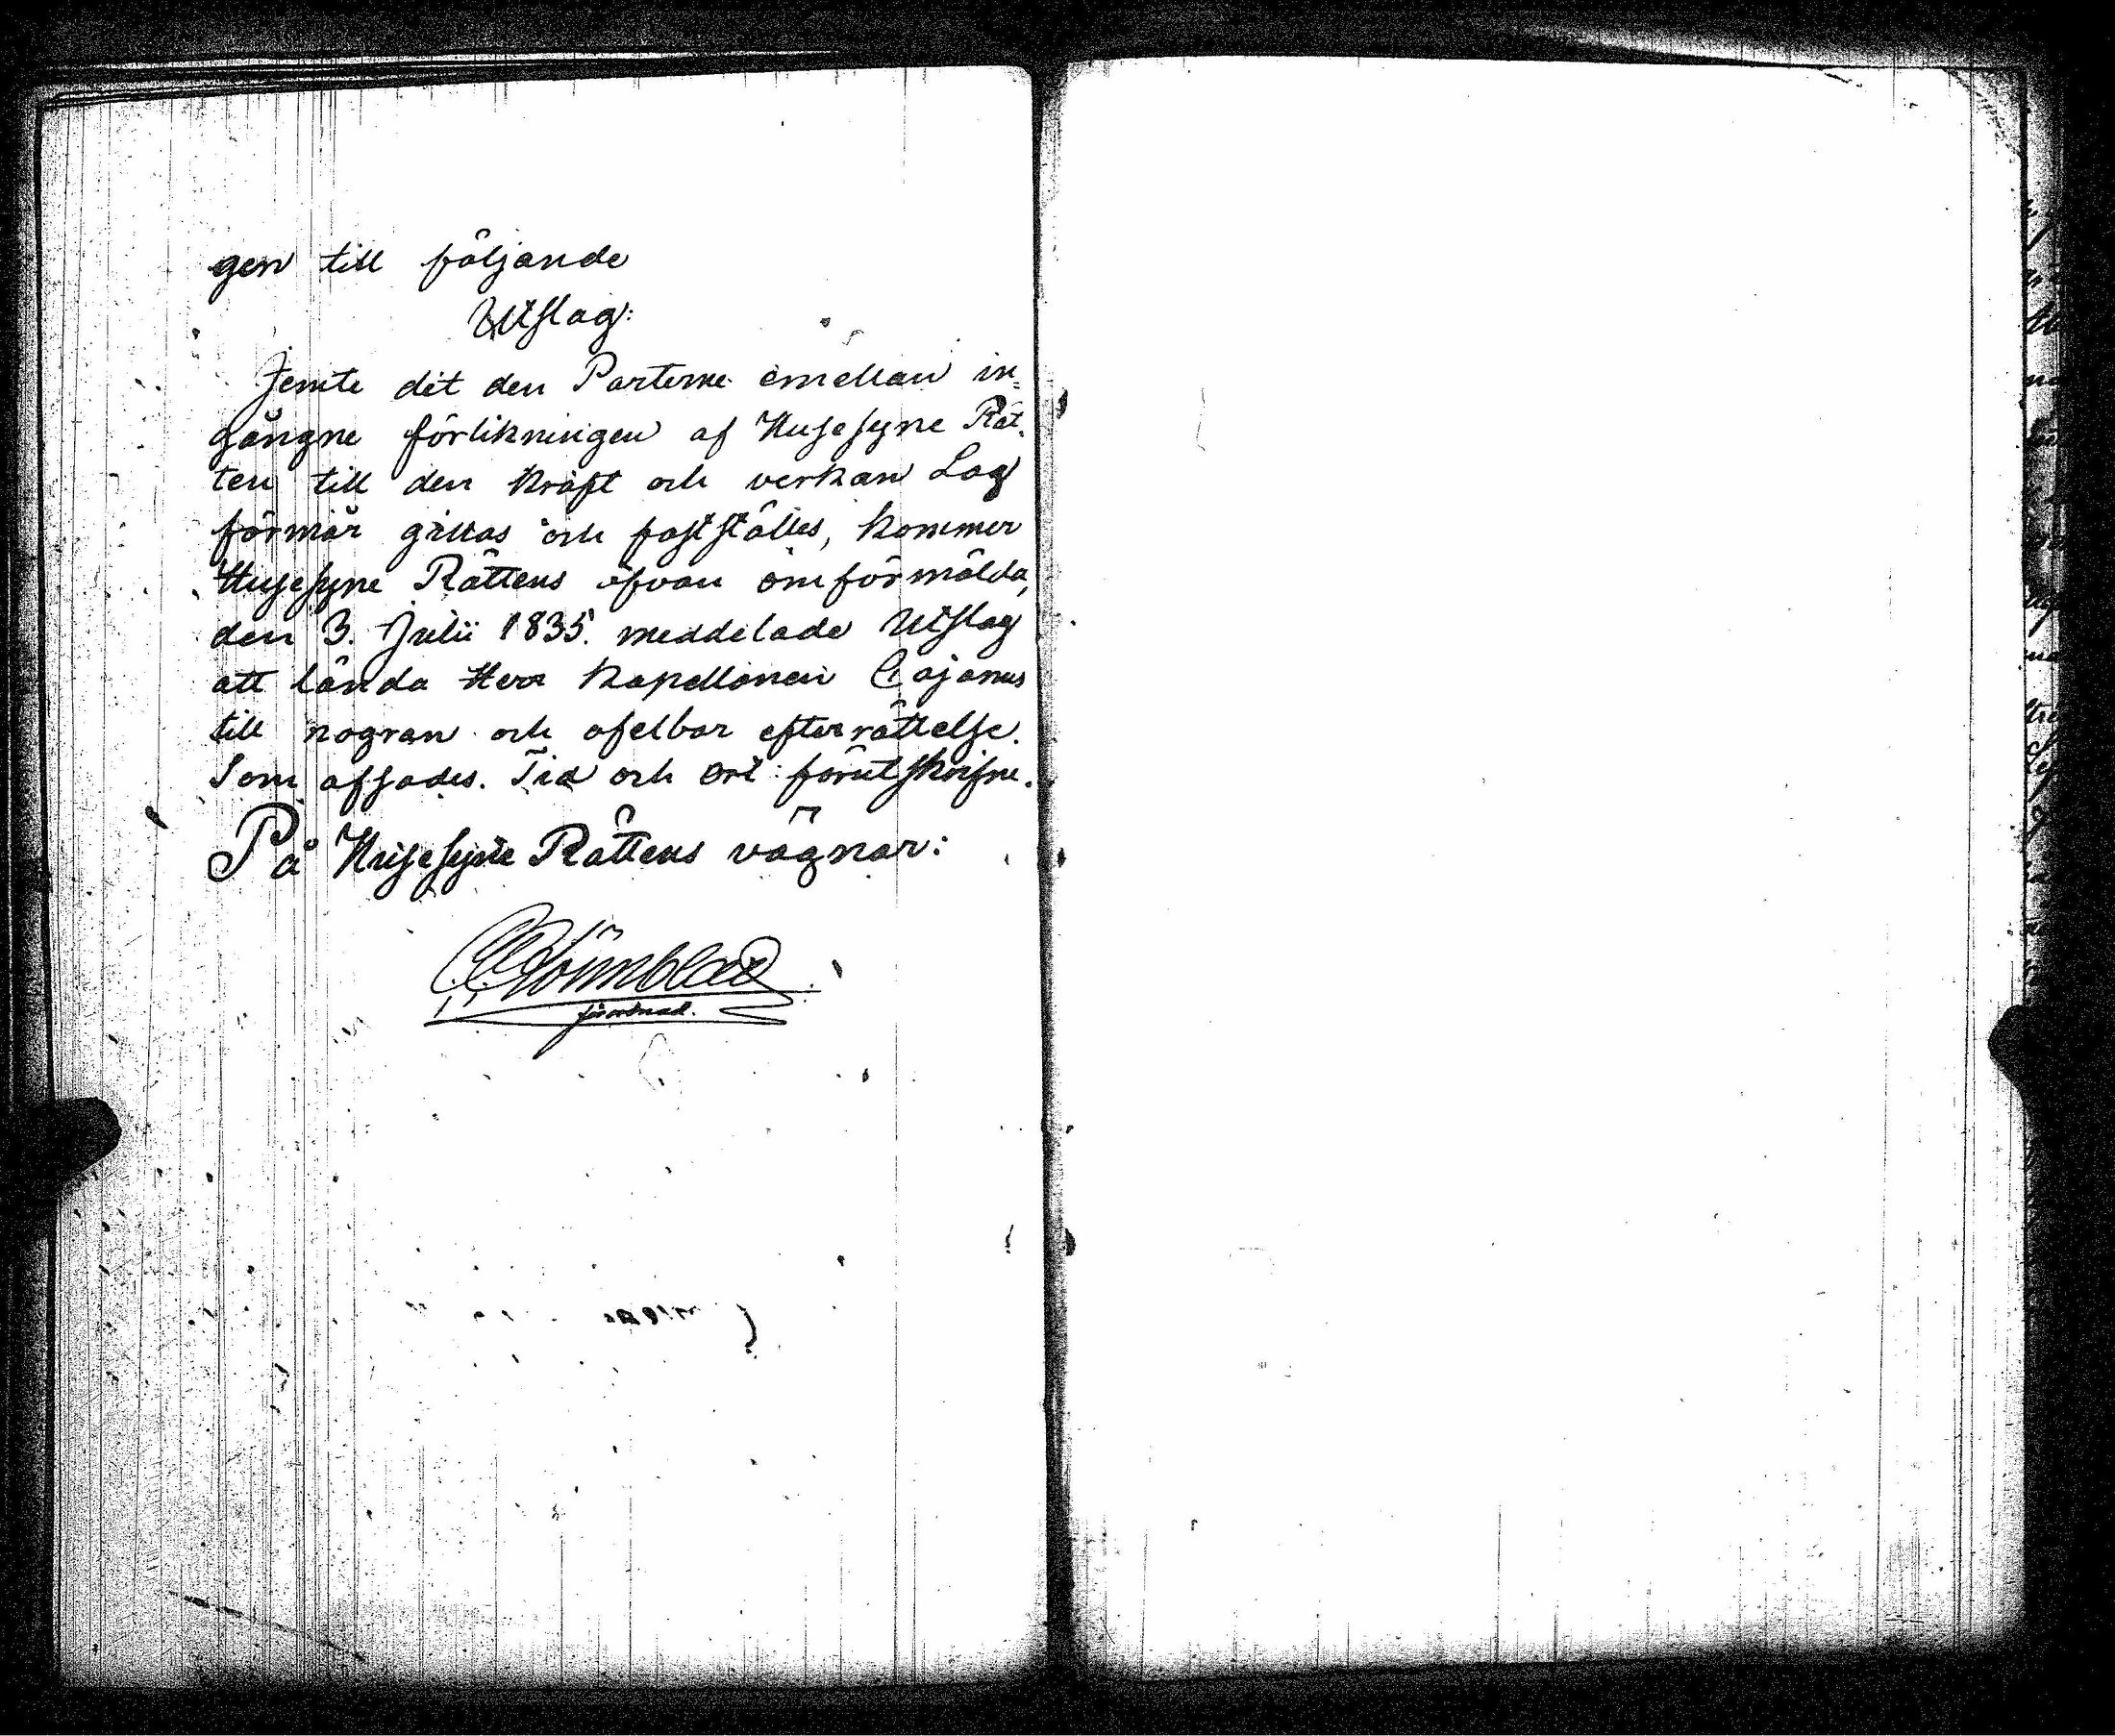 gen till följande
Utslag:
Jemte det den Parterne emellan in=
gångne förlikningen af Husesyne Rät,
ten till den kraft och verkan Lag
förmår gillas och fastställes, kommer
Husesyne Rättens ofvan omförmälda,
den 3. Julii 1835. meddelade Utslag
att lända Herr Kapellanen Cajanus
till nogran och ofelbar efterrättelse.
Som afsades. Tid och Ort förutskrifne.
På Husesyne Rättens vägnar:
förordnad.